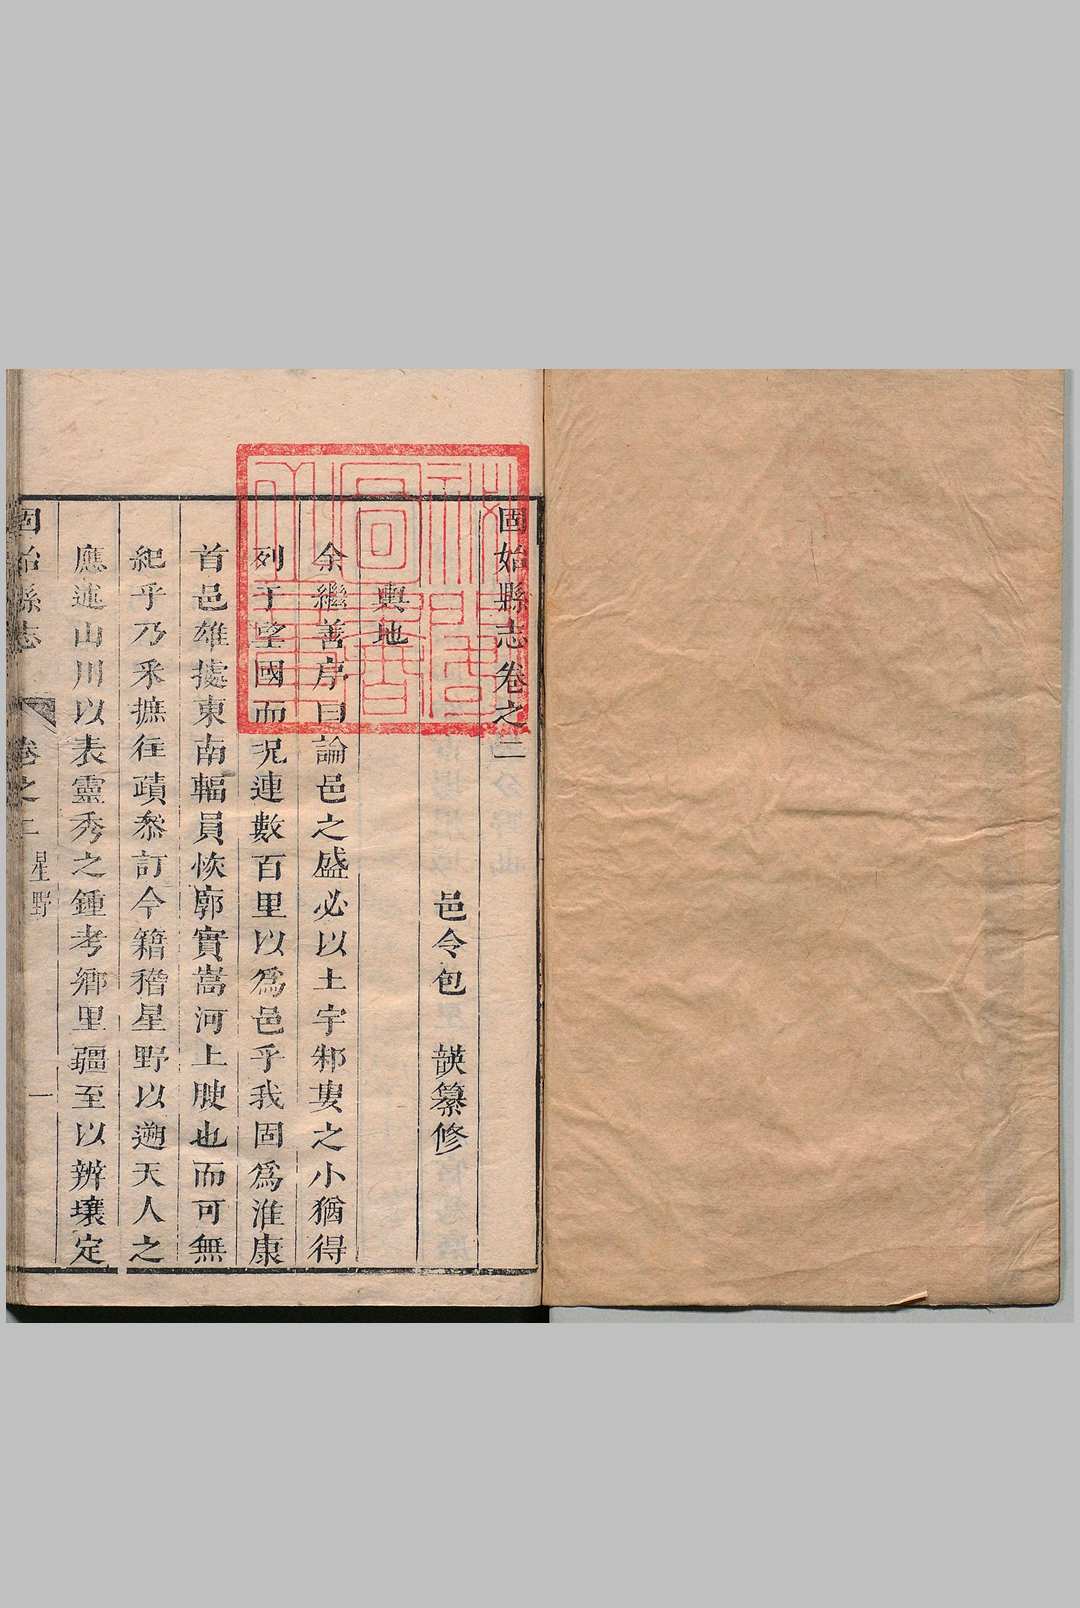 固始縣志卷之二
邑令包 韺纂修
輿地
余繼善序曰論邑之盛必以土宇邾婁之小猶得
列于望國而况連數百里以爲邑乎我固爲淮康
首邑雄據東南輻員恢廓實嵩河上腴也而可無
紀乎乃采摭往蹟叅訂今籍稽星野以遡天人之
應述山川以表靈秀之鍾考鄉里疆至以辨壤定
固始縣志 卷之二 星野 一